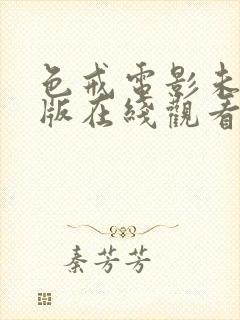 色戒電影未
版在綫觀看
秦芳芳